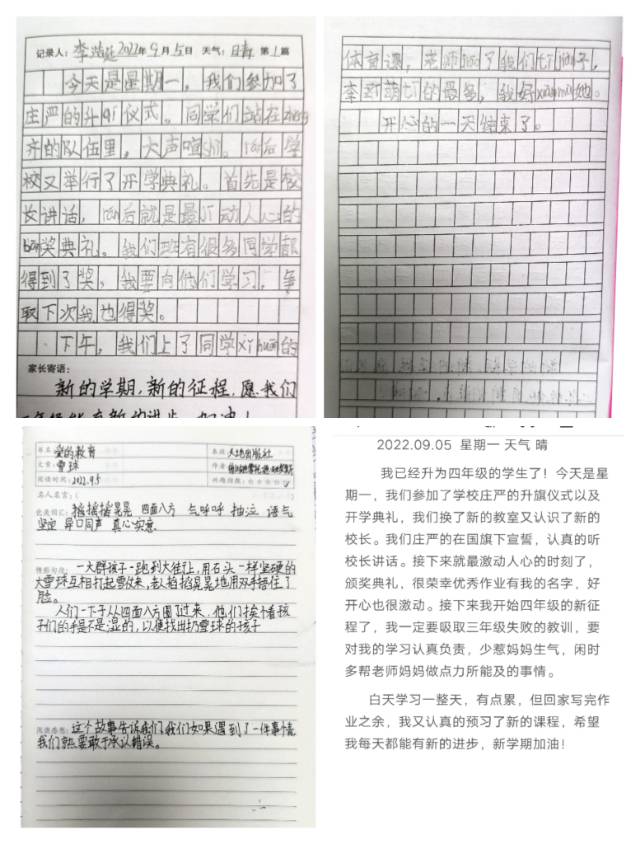 记录人：李浩延 2022年9月5日 天气：日青 第1篇
今天是星期一，我们参加了
庄严的升qí仪式。同学们站在zhěng
齐的队伍里，大声喧shì。rán后学
校又举行了开学典礼。首先是校
长讲话，rán后就是最jī动人心的
bān奖典礼。我们班有很多同学都
得到了奖，我要向他们学习，争
取下次我也得奖。
下午，我们上了同学xǐ huān的
家长寄语：
新的学期，新的征程，愿我们
体育课，老师
李 萌 的最多，我好xiàn mù她。
开心的一天结束了。
书名 爱的教育
出版 大地出版社
文章 雪球
作者
阅读时间：2022.9.5
名人名言：
优美词汇：摇摇晃晃 四面八方 气呼呼 抽泣 语气
坚定 异口同声 真心实意
精彩句段：一大群孩子一跑到大街上，用石头一样坚硬的
大雪球互相打起雪仗来，老人摇摇晃晃地用双手捂住了
脸。
人们一下子从四面八方围了过来，他们挨个看孩
子们的手是不是湿的，以便找出扔雪球的孩子
阅读感悟：这个故事告诉我们，我们如果遇到了一件事情
我们就要敢于承认错误。
2022.09.05 星期一 天气 晴
我已经升为四年级的学生了！今天是星
期一，我们参加了学校庄严的升旗仪式以及
开学典礼，我们换了新的教室又认识了新的
校长。我们庄严的在国旗下宣誓，认真的听
校长讲话。接下来就最激动人心的时刻了，
颁奖典礼，很荣幸优秀作业有我的名字，好
开心也很激动。接下来我开始四年级的新征
程了，我一定要吸取三年级失败的教训，要
对我的学习认真负责，少惹妈妈生气，闲时
多帮老师妈妈做点力所能及的事情。
白天学习一整天，有点累，但回家写完作
业之余，我又认真的预习了新的课程，希望
我每天都能有新的进步，新学期加油！